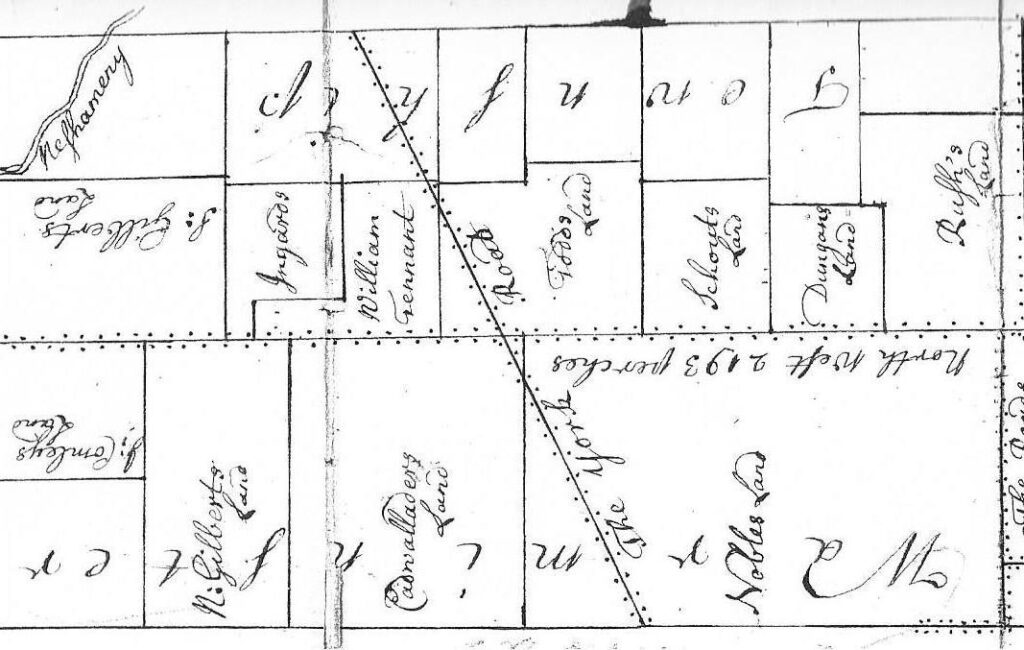 Township
Neshameny
J: Gilberts
Land
Ingards
William
Tennant
Todds
Land
Schouts
Land
Dungans
Land
Rush's
Land
The York Road
North West 2193 perches
J: Comleys
Land
N: Gilberts
Land
Cadwalladers
Land
Nobles Land
Warminster
The Road